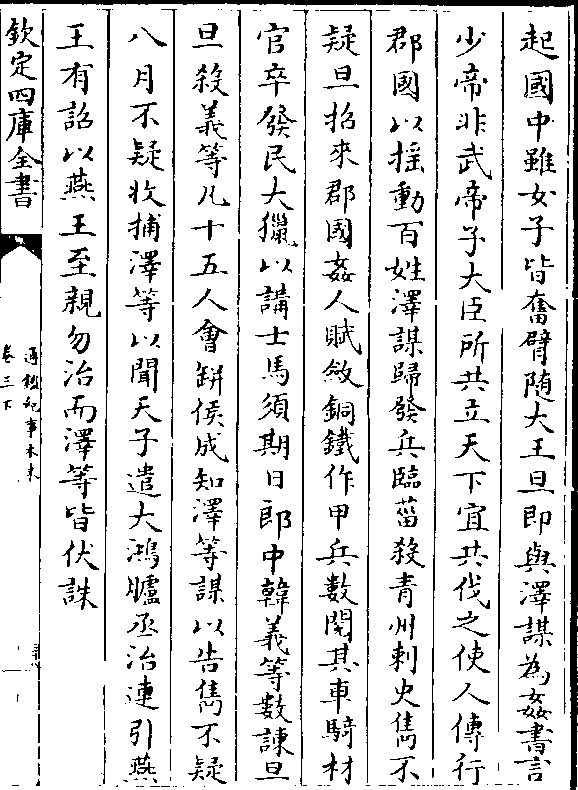 起國中雖女子皆奮臂随大王旦即與澤謀為姦書言
少帝非武帝子大臣所共立天下宜共伐之使人傳行
郡國以揺動百姓澤謀歸發兵臨菑殺青州刺史雋不
疑旦招來郡國姦人賦斂銅鐵作甲兵數閱其車騎材
官卒發民大獵以講士馬須期日郎中韓義等數諫旦
旦殺義等凡十五人會缾侯成知澤等謀以告雋不疑
八月不疑收捕澤等以聞天子遣大鴻臚丞治連引燕
王有詔以燕王至親勿治而澤等皆伏誅
欽定四庫全書
通鑑紀事本末
卷三下